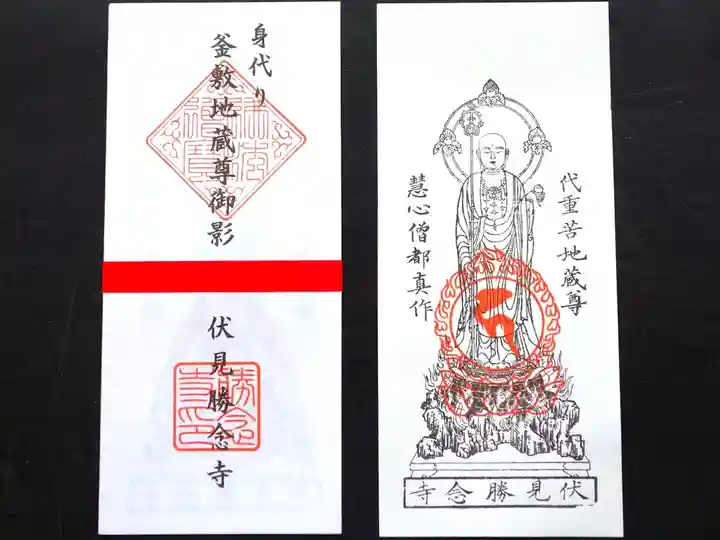 身代り
釜敷地蔵尊御影
伏見勝念寺
勝念
寺印
代重苦地蔵尊
慧心僧都真作
伏見勝念寺